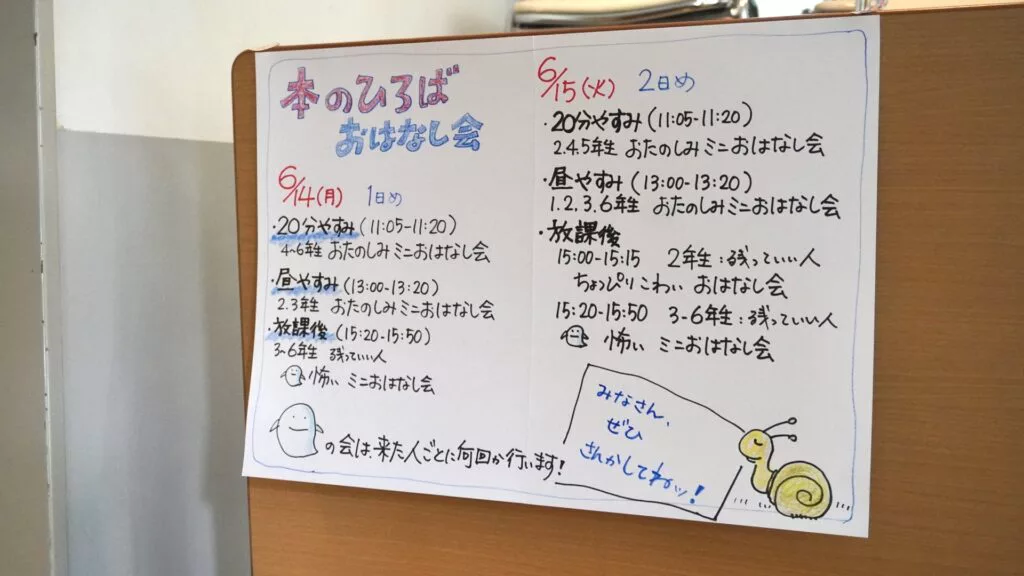 本のひろば
おはなし会
6/14(月) 1日め
・20分やすみ(11:05-11:20)
4-6年生 おたのしみミニおはなし会
・昼やすみ(13:00-13:20)
2.3年生 おたのしみミニおはなし会
・放課後(15:20-15:50)
3-6年生 残っていい人
怖い ミニおはなし会
の会は、来た人ごとに何回か行います!
6/15(火) 2日め
・20分やすみ(11:05-11:20)
2.4.5年生 おたのしみミニおはなし会
・昼やすみ(13:00-13:20)
1.2.3.6年生 おたのしみミニおはなし会
・放課後
15:00-15:15 2年生:残っていい人
ちょっぴりこわい おはなし会
15:20-15:50 3-6年生:残っていい人
怖い ミニおはなし会
みなさん、
ぜひ
さんかしてねッ!